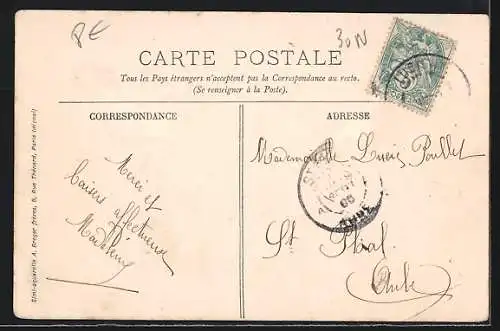 30N
CARTE POSTALE
Tous les Pays étrangers n'acceptent pas la Correspondance au recto.
(Se renseigner à la Poste).
CORRESPONDANCE
ADRESSE
Merci et
baisers affectueux
Madeleine
Mademoiselle Lucie Poullet
St Phal
Aube
AUBE
Simi-aquarelle A. Breger frères, 9, Rue Thénard, Paris